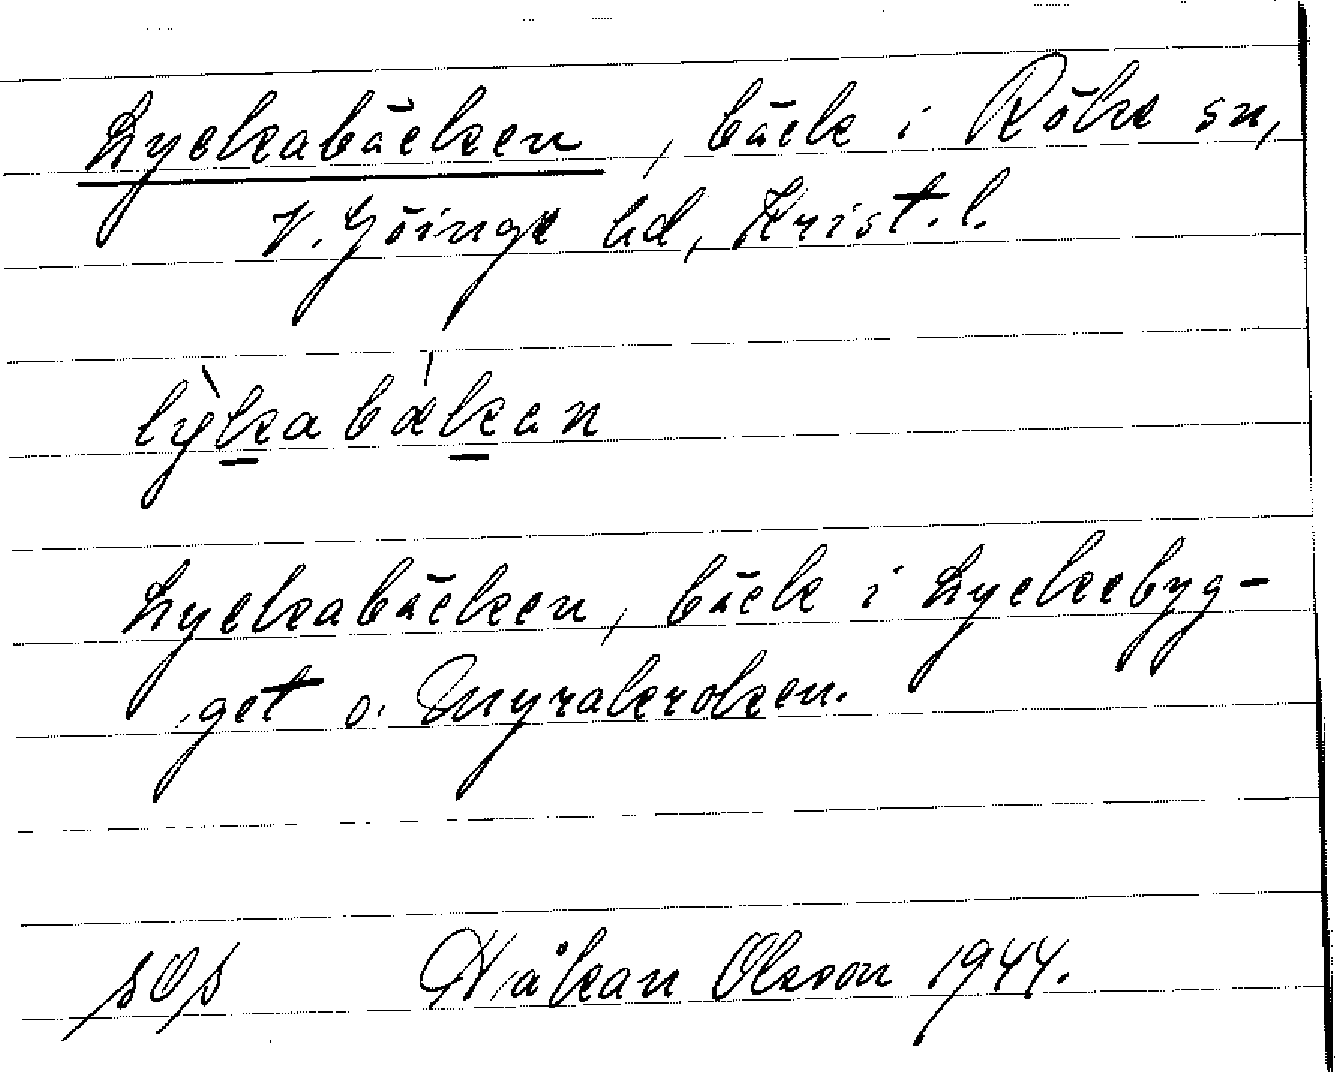 Lyckabäcken, bäck i Röke sn,
V. Göinge hd, Krist. l.
lỳkabækan
Lyckabäcken, bäck i Lyckebyg-
get o. Myrakroken.
sOs Håkan Olsson 1944.